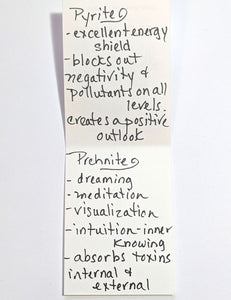 Pyrite
- excellent energy
shield
- blocks out
negativity &
pollutants on all
levels.
creates a positive
outlook
Prehnite
- dreaming
- meditation
- visualization
- intuition - inner
knowing
- absorbs toxins
internal &
external